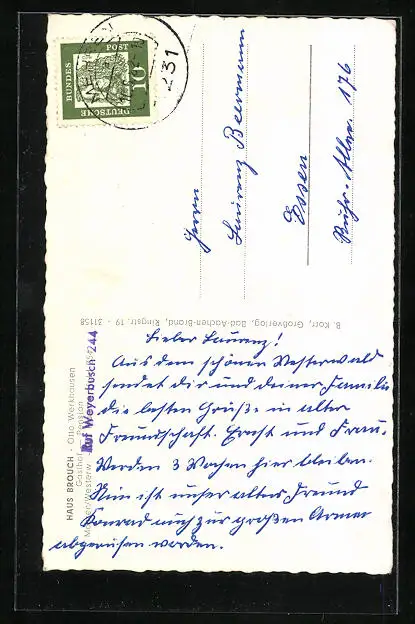 Lieber Laurenz!
Aus dem schönen Westerwald
sendet dir und deiner Familie
die besten Grüße in alter
Freundschaft. Ernst und Frau.
Werden 3 Wochen hier bleiben.
Nun ist unser alter Freund
Konrad auch zur großen Armee
abgerufen worden.
Herrn
Laurenz Beermann
Essen
Ruhr-Allee 176
DEUTSCHE
BUNDES
POST
10
231
HAUS BROUCH - Otto Werkhausen
Gasthof - Pension
Ruf Weyerbusch 244
B. Korr, Großverlag, Bad-Aachen-Brand, Ringstr. 19 - 31158